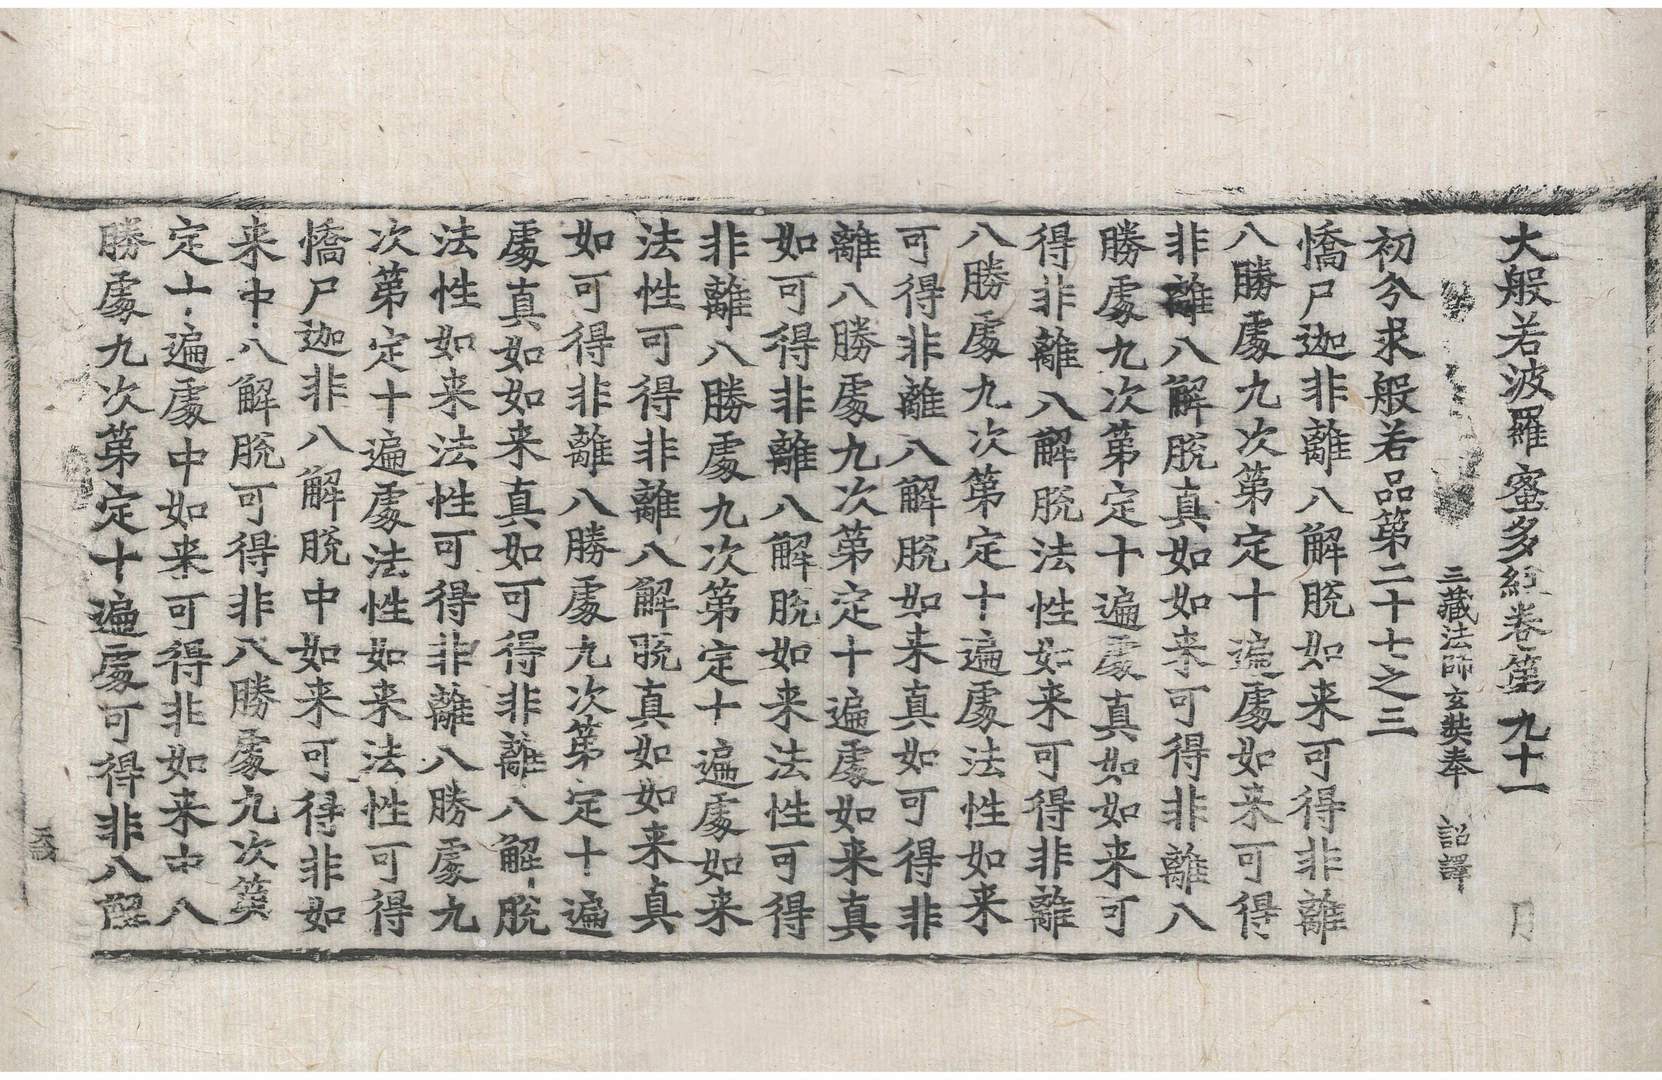 大般若波羅蜜多經卷第九十一
三藏法師玄奘奉 詔譯
初分求般若品第二十七之三
憍尸迦非離八解脫如来可得非離
八勝處九次第定十遍處如来可得
非離八解脫真如如来可得非離八
勝處九次第定十遍處真如如来可
得非離八解脫法性如来可得非離
八勝處九次第定十遍處法性如来
可得非離八解脫如来真如可得非
離八勝處九次第定十遍處如来真
如可得非離八解脫如来法性可得
非離八勝處九次第定十遍處如来
法性可得非離八解脫真如如来真
如可得非離八勝處九次第定十遍
處真如如来真如可得非離八解脫
法性如来法性可得非離八勝處九
次第定十遍處法性如来法性可得
憍尸迦非八解脫中如来可得非如
来中八解脫可得非八勝處九次第
定十遍處中如来可得非如来中八
勝處九次第定十遍處可得非八解